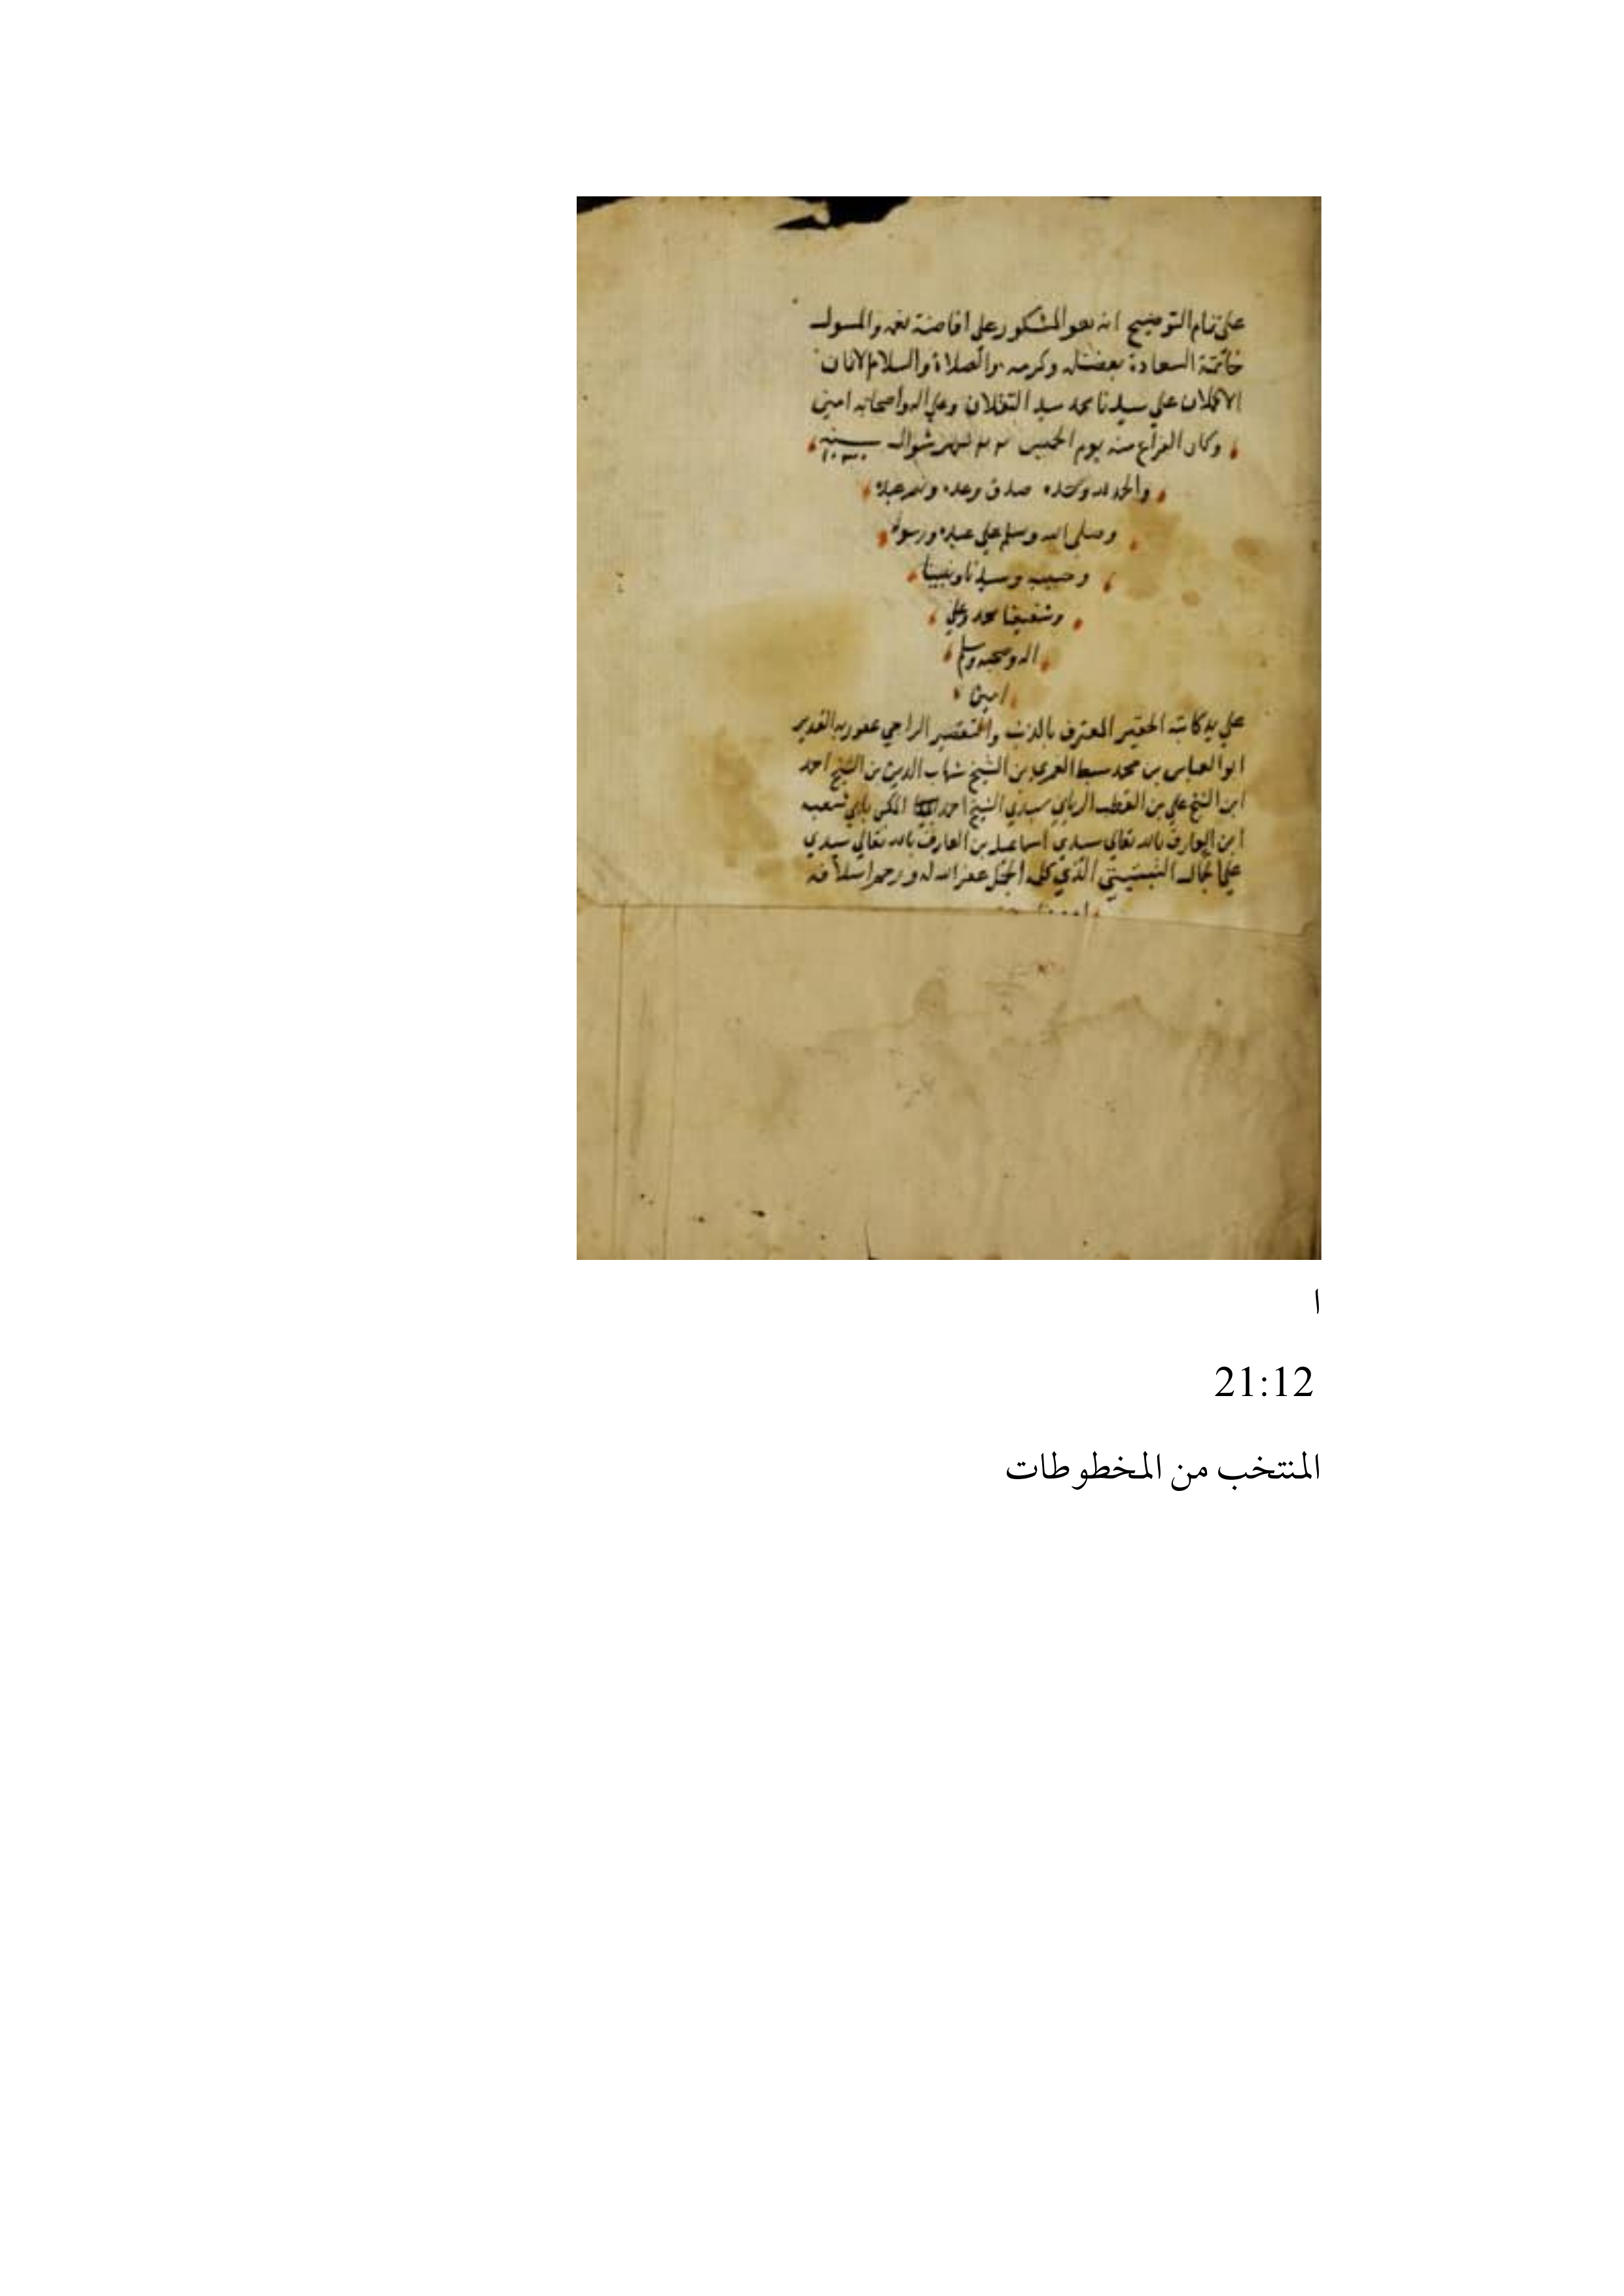 على تمام التوضيح انه هو المشكور على افاضة نعمه والمسول
خاتمة السعادة بفضله وكرمه والصلاة والسلام الاتمان
الاكملان علي سيدنا محمد سيد الثقلان وعلي اله واصحابه امين
وكان الفراغ منه يوم الخميس شهر شوال سنة
والحمد لله وحده صدق وعده ونصر عبده
وصلى الله وسلم علي عبده ورسوله
وحبيبه وسيدنا ونبينا
وشفيعنا محمد وعلي
اله وصحبه وسلم
امين
علي يد كاتبه الحقير المعترف بالذنب والتقصير الراجي عفو ربه القدير
ابو العباس بن محمد سبط بن الشيخ شهاب الدين بن الشيخ احمد
ابن الشيخ علي بن القطب الرباني سيدي الشيخ احمد المكنى بابي شعيب
ابن العارف بالله تعالي سيدي اسماعيل بن العارف بالله تعالي سيدي
علي الذي غفر الله له ورحم اسلافه
ا
21:12
المنتخب من المخطوطات